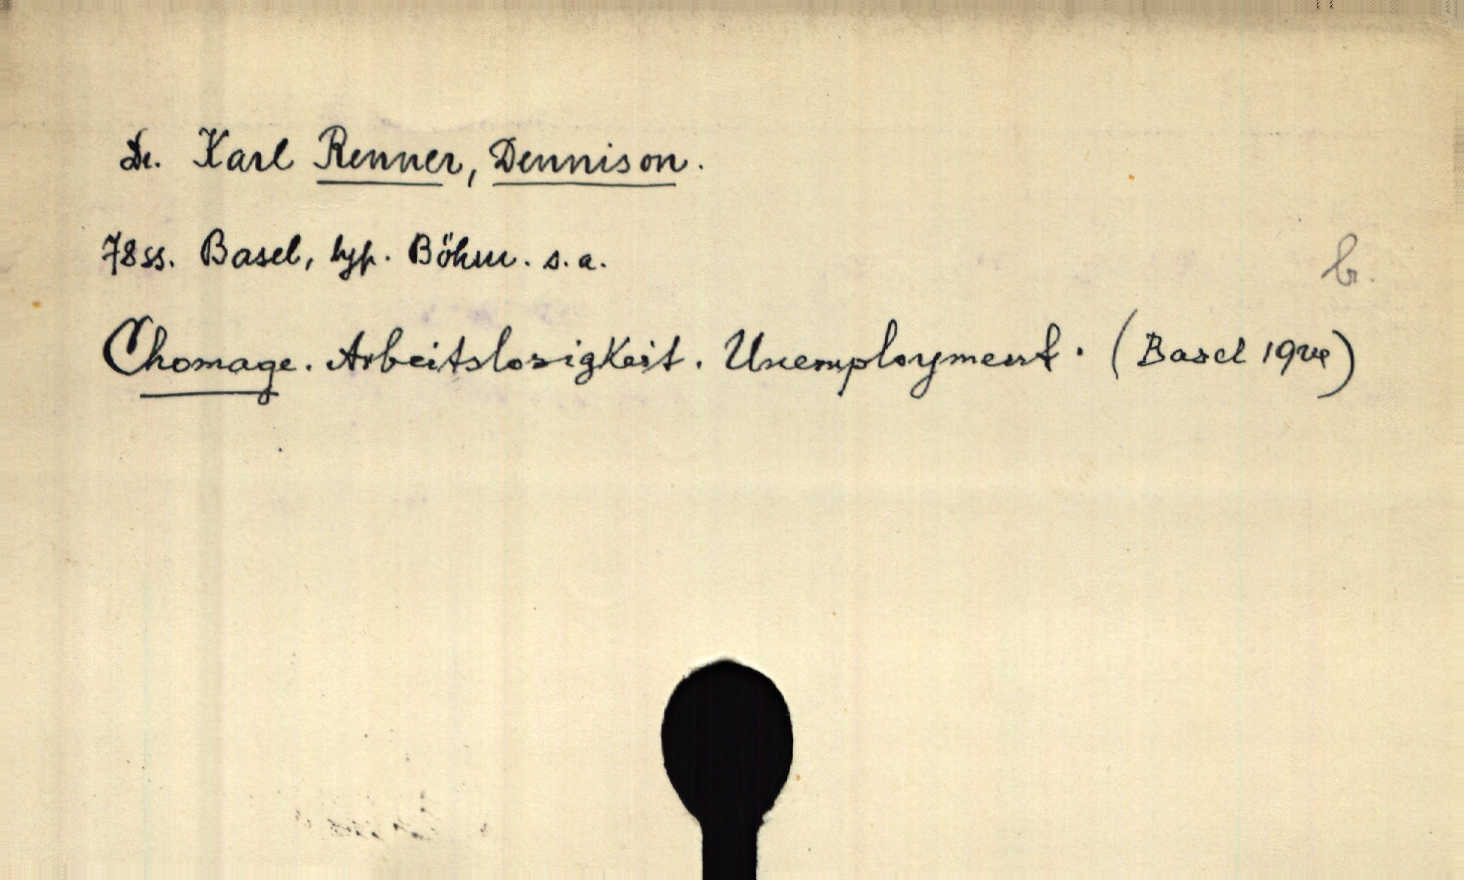 Dr. Karl Renner, Dennison.
78 ss. Basel, typ. Böhm. s. a.
br.
Chomage. Arbeitslosigkeit. Unemployment. (Basel 1924)